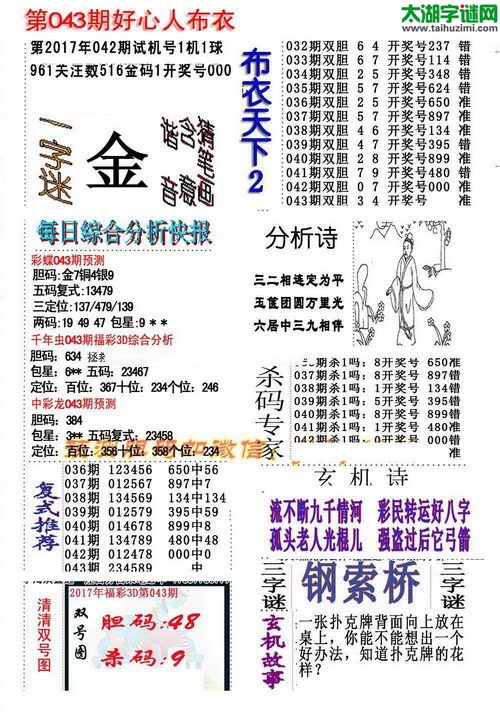 太湖字谜网
www.taihuzimi.com
第043期好心人布衣
第2017年042期试机号1机1球
961关汪数516金码1开奖号000
一字迷
金
猜笔画
含意
谐音
布衣天下2
032期双胆 6 4 开奖号237 错
033期双胆 6 7 开奖号114 错
034期双胆 2 5 开奖号348 错
035期双胆 5 7 开奖号624 错
036期双胆 2 5 开奖号650 准
037期双胆 5 7 开奖号897 准
038期双胆 4 6 开奖号134 准
039期双胆 4 7 开奖号395 错
040期双胆 2 8 开奖号899 准
041期双胆 7 9 开奖号480 错
042期双胆 0 7 开奖号000 准
043期双胆 3 4 开奖号 准
每日综合分析快报
彩蝶043期预测
胆码:金7铜4银9
五码复式:13479
三定位:137/479/139
两码:19 49 47 包星:9 * *
千年虫043期福彩3D综合分析
胆码: 634
包星: 6** 五码: 23467
定位: 百位: 367十位: 234个位: 246
中彩龙043期预测
胆码: 384
包星: 3** 五码: 23458
定位: 百位: 356十位: 358个位: 234
分析诗
三二相连定为平
玉蓖团圆万里光
六居中三九相伴
杀码专家
037期杀1吗:8开奖号 897错
038期杀1吗:1开奖号 134错
039期杀1吗:0开奖号 395准
040期杀1吗:9开奖号 899错
041期杀1吗:1开奖号 480准
042期杀1吗:0开奖号 000错
复式推荐
036期 123456 650中56
037期 012567 897中7
038期 134569 134中134
039期 234589 395中359
040期 014678 899中8
041期 134679 480中4
042期 012479 000中0
043期 234589 中
玄机诗
流不断九千情河 彩民转运好八字
孤头老人光棍儿 强盗过后它弓箭
清清双号图
2017年福彩3D第043期
双号图
胆码:48
杀码:9
三字谜
钢索桥
三字谜
玄机故事
一张扑克牌背面向上放在
桌上，你能不能想出一个
好办法，知道扑克牌的花
样?